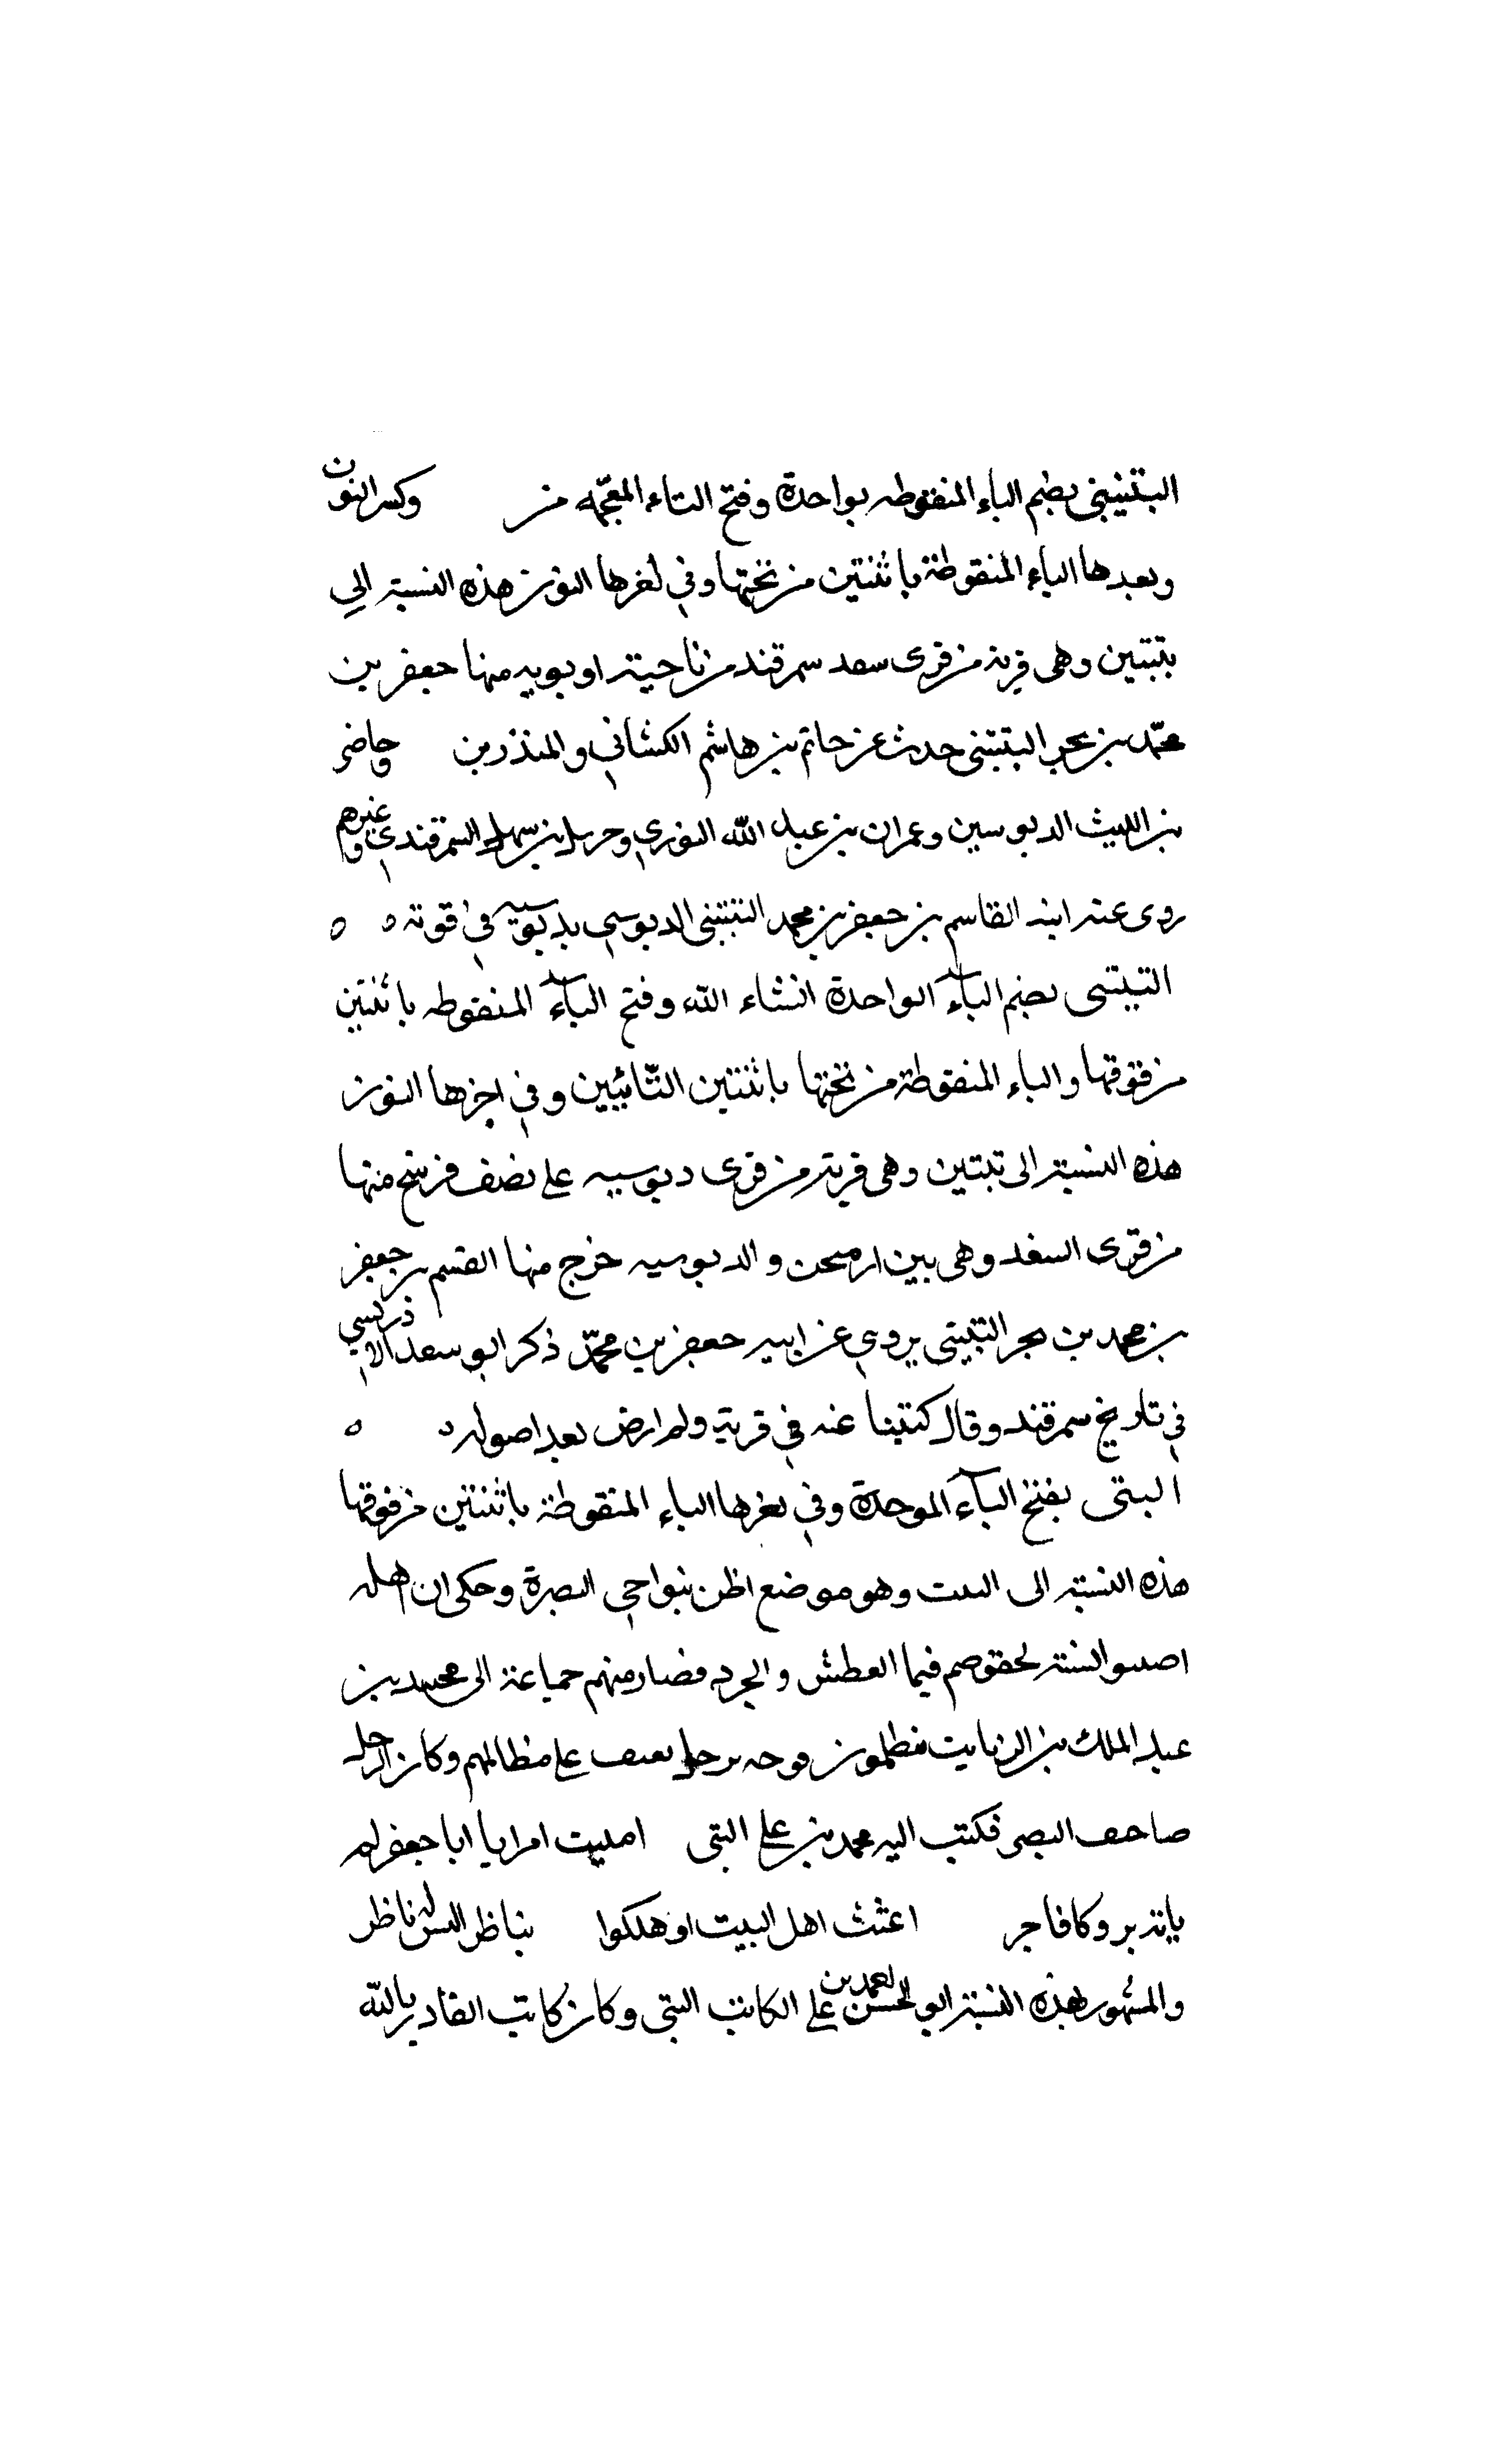 البتنيني بضم الباء المنقوطه بواحدة وفتح التاء المعجمه من وكسر النون
وبعدها الياء المنقوطة باثنتين من تحتها وفي اخرها النون هذه النسبة الى
بتنين وهى قرية من قرى سعد سمرقند من ناحية اوبوبيه منها جعفر بن
محمد بن بحر البتنينى حدث عن حاتم بن هاشم الكشاني والمنذر بن وحاضر
بن الليث الدبوسين وعمران بن عبد الله النوري و بن سهل السمرقندي وغيرهم
روى عنه ابنه القاسم بن جعفر بن محمد البتنينى الدبوسي بدبوسيه في قوته ٥ ٥
التبتينى بضم الباء الواحدة انشاء الله وفتح الباء المنقوطه باثنتين
من فوقها والياء المنقوطة من تحتها باثنتين التائيين وفي اخرها النون
هذه النسبة الى تبتين وهى قرية من قرى دبوسيه على نصف فرسخ منها
من قرى السغد وهى بين والدبوسيه خرج منها القسم بن جعفر
بن محمد بن بحر التبيتى يروي عن ابيه جعفر بن محمد ذكر ابو سعد الادريسي
في تاريخ سمرقند وقال كتبنا عنه في قرية ولم ارض بعد اصوله ٥ ٥
البتى بفتح الباء الموحدة وفي اخرها الباء المنقوطة باثنتين من فوقها
هذه النسبة الى البت وهو موضع اظن بنواحي البصرة وحكى ان اهله
السنة فيها العطش فصار منهم جماعة الى محمد بن
عبد الملك بن الزيات على مظالمهم وكان الرجل
فكتب اليه محمد بن على البتى اتيت امرا يا ابا جعفر لم
ياته بر وكا فاجر اعثت اهل البيت اوهلكوا بناظر ليس له ناظر
والمشهور بهذه النسبة ابو الحسن احمد بن على الكاتب البتى وكان كاتب القادر بالله